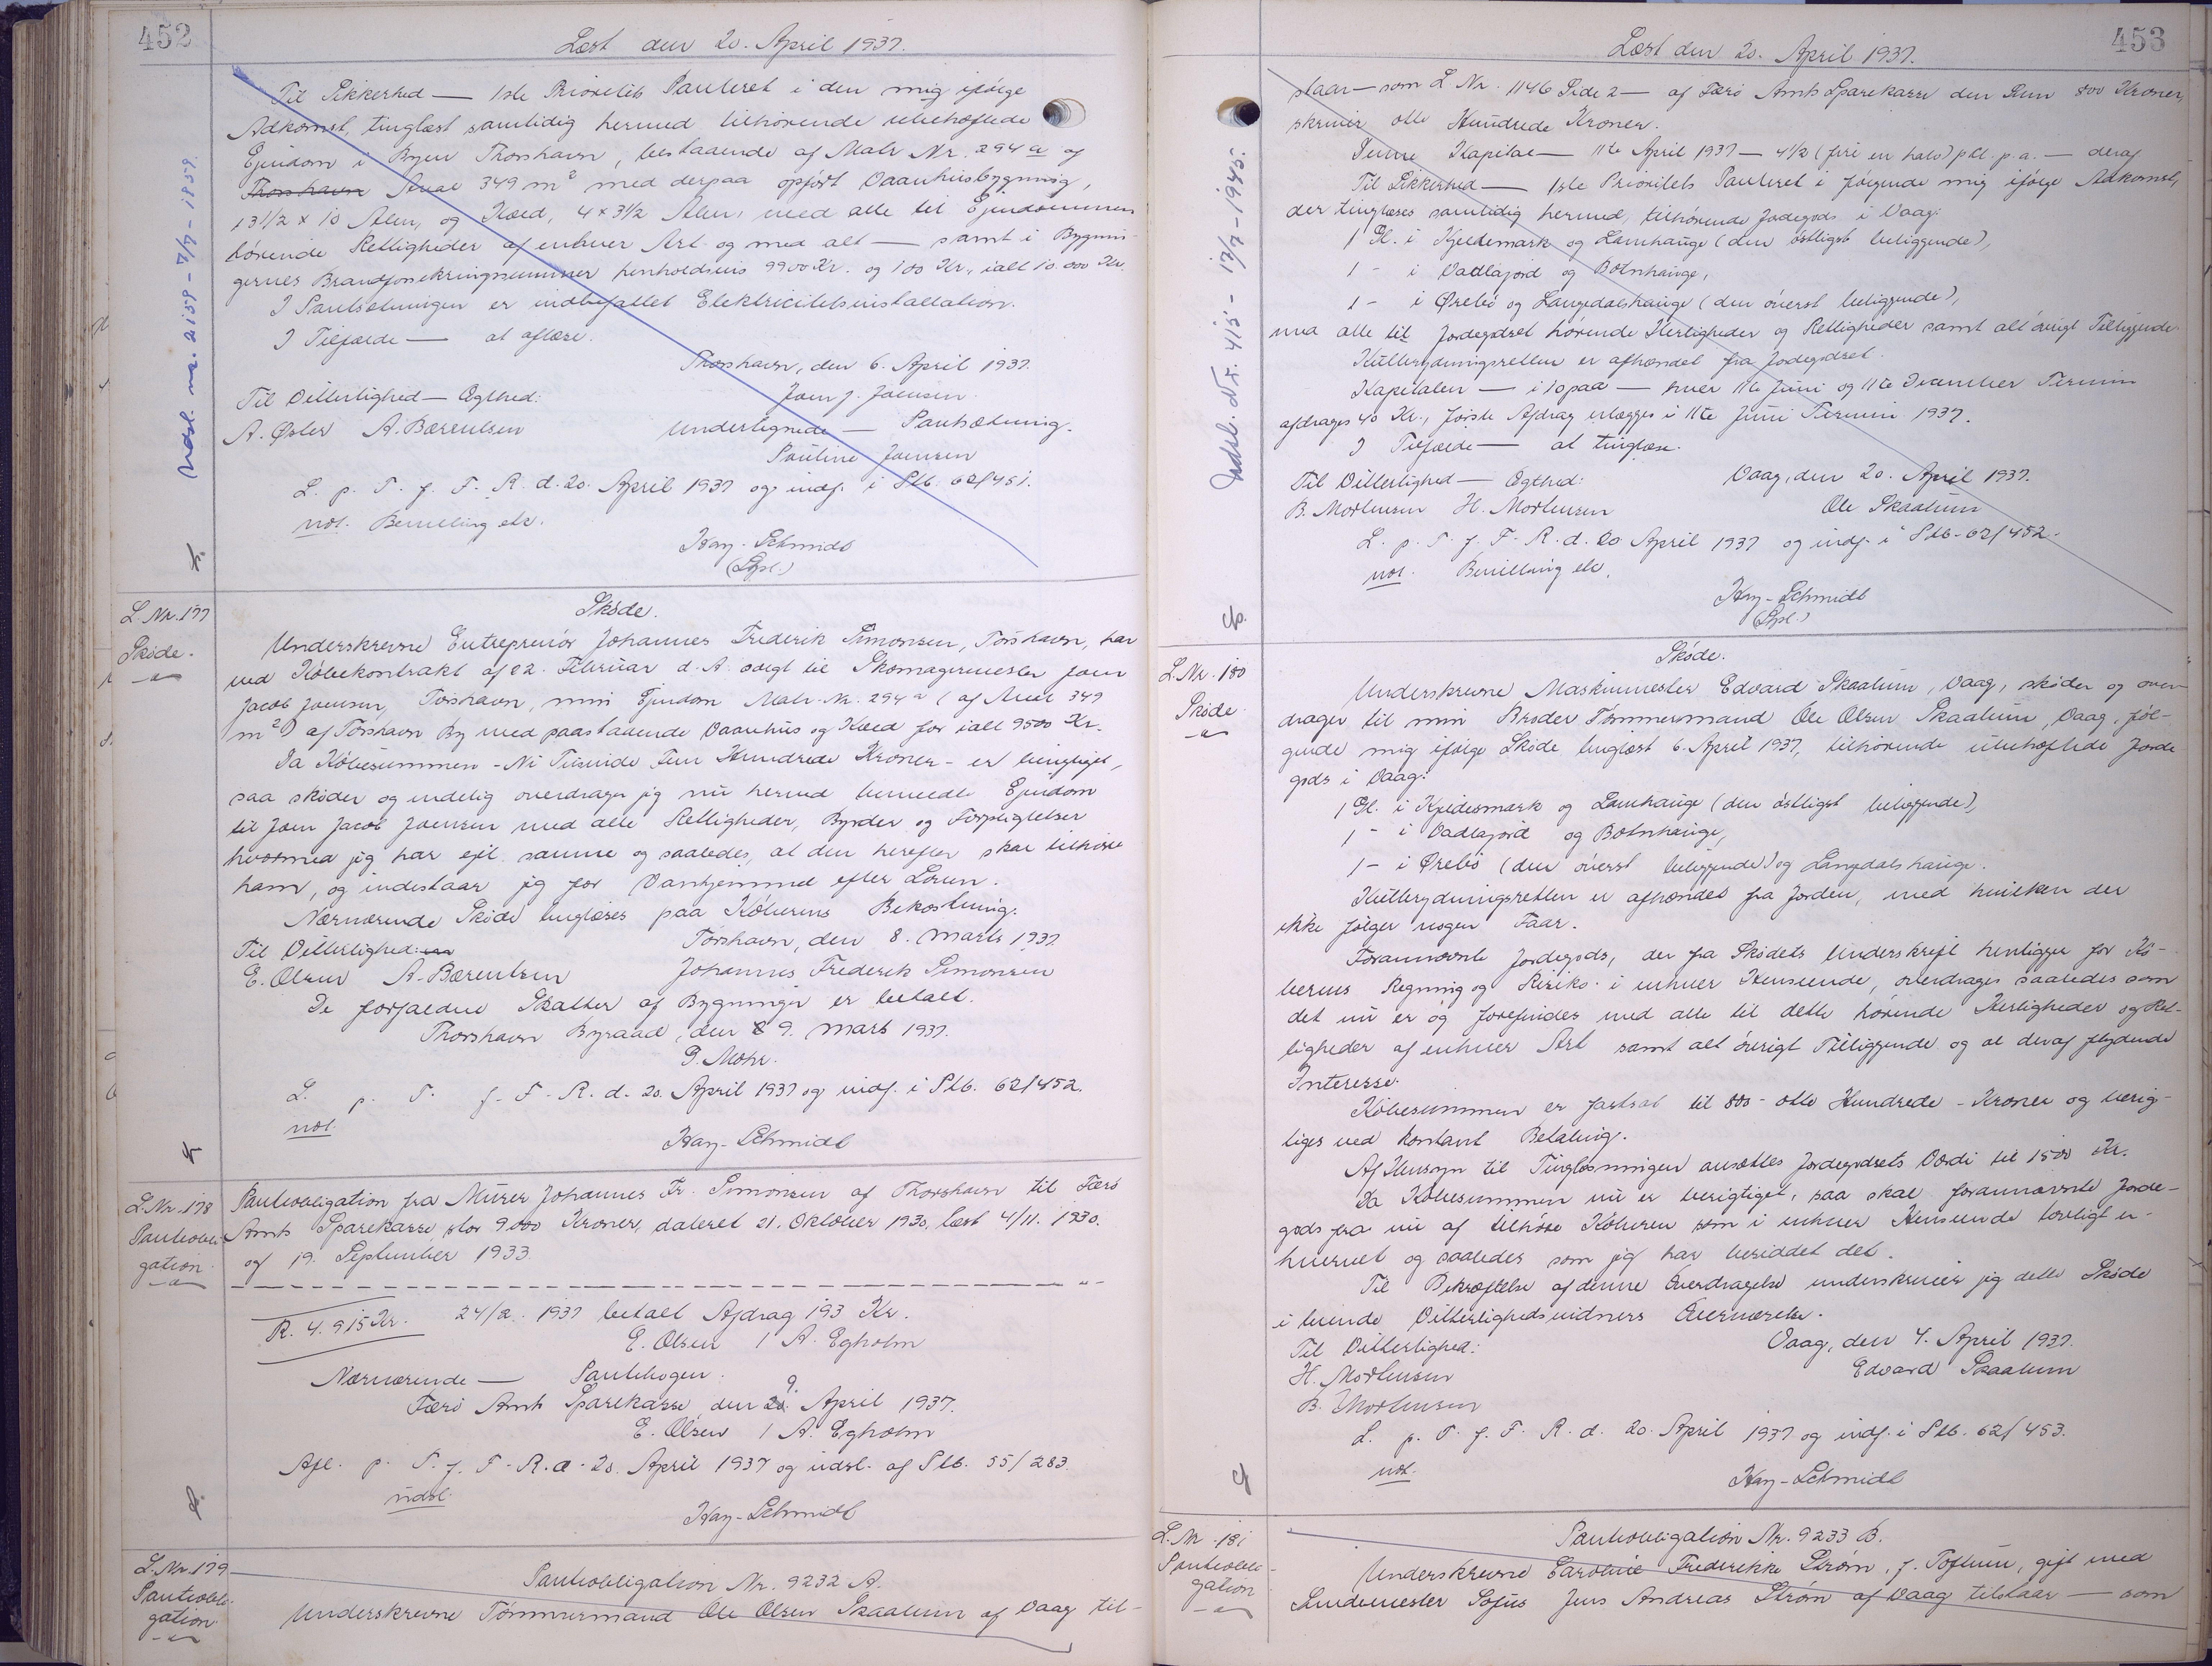 452
Læst den 20. April 1937.
Til Sikkerhed — 1ste Prioritets Panteret i den mig ifølge
Adkomst, tinglæst samtidig hermed tilhørende ubehæftede
Ejendom i Byen Thorshavn, bestaaende af Matr. Nr. 294 a af
Thorshavn Areal 349 m² med derpaa opført Vaanhusbygning,
13 1/2 x 10 Alen, og Kæld, 4 x 3 1/2 Alen, med alle til Ejendommen
hørende Rettigheder af enhver Art og med alt — samt i Bygnin-
gernes Brandforsikringssummer henholdsvis 9900 Kr. og 100 Kr., ialt 10.000 Kr.
I Pantsætningen er indbefattet Elektricitetsinstallation.
I Tilfælde — at aflæse.
Thorshavn, den 6. April 1937.
Til Vitterlighed — Ægthed: Joen J. Joensen
A. Øster A. Bærentsen Undertegnede — Pantsætning.
Pauline Joensen
L. p. T. f. F. R. d. 20. April 1937 og indf. i Ptb. 62/451.
not. Bevilling etc.
Kay-Schmidt
(Lgsl.)
Udsl. nr. 2159 - 7/7 - 1959.
L. Nr. 177
Skøde.
Skøde.
Underskrevne Entreprenør Johannes Frederik Simonsen, Torshavn, har
ved Købekontrakt af 22. Februar d. A. solgt til Skomagermester Joen
Jacob Joensen, Torshavn, min Ejendom Matr. Nr. 294 a (af Areal 349
m²) af Torshavn By med paastaaende Vaanhus og Kæld for ialt 9500 Kr.
Da Købesummen - Ni Tusinde Fem Hundrede Kroner - er berigtiget,
saa skøder og endelig overdrager jeg nu hermed bemeldte Ejendom
til Joen Jacob Joensen med alle Rettigheder, Byrder og Forpligtelser
hvormed jeg har ejet samme og saaledes, at den herefter skal tilhøre
ham, og indestaar jeg for Vanhjemmel efter Loven.
Nærværende Skøde tinglæses paa Køberens Bekostning.
Til Vitterlighed: Torshavn, den 8. Marts 1937
E. Olsen A. Bærentsen Johannes Frederik Simonsen
De forfaldne Skatter af Bygninger er betalt.
Thorshavn Byraad, den 9. Marts 1937.
G. Mohr.
L. p. T. f. F. R. d. 20. April 1937 og indf. i Ptb. 62/452.
not.
Kay-Schmidt
L. Nr. 178
Pantobli-
gation.
Pantobligation fra Murer Johannes Fr. Simonsen af Thorshavn til Færø
Amts Sparekasse, stor 9.000 Kroner, dateret 21. Oktober 1930, læst 4/11. 1930.
og 19. September 1933.
R. 4.915 Kr. 24/2. 1937 betalt Afdrag 193 Kr.
E. Olsen / A. Egholm
Nærværende — Pantebogen.
Færø Amts Sparekasse den 9. April 1937.
E. Olsen / A. Egholm
Afl. p. T. f. F. R. d. 20. April 1937 og udsl. af Ptb. 55/283.
udsl.
Kay-Schmidt
L. Nr. 179
Pantobli-
gation
Pantobligation Nr. 9232 A.
Underskrevne Tømmermand Ole Olsen Skaalum af Vaag til-
453
Læst den 20. April 1937.
staar — som L Nr. 1146 Side 2 — af Færø Amts Sparekasse den Sum 800 Kroner,
skriver otte Hundrede Kroner.
Denne Kapital — 11te April 1937 — 4 1/2 (fire en halv) pCt. p. a. — deraf
Til Sikkerhed — 1ste Prioritets Panteret i følgende mig ifølge Adkomst,
der tinglæses samtidig hermed, tilhørende Jordegods i Vaag:
1 Gl. i Kjeldemark og Lamhauge (den østligst beliggende),
1 - i Vadlagjord og Botnhauge,
1 - i Ørebø og Langedalshauge (den øverst beliggende),
med alle til Jordegodset hørende Herligheder og Rettigheder samt alt øvrigt Tilliggende.
Kultrydningsretten er afhændet fra Jodegodset.
Kapitalen — i Lopaa — hver 11te Juni og 11te December Termin
afdrages 40 Kr., første Afdrag erlægges i 11te Juni Termin 1937.
I Tilfælde — at tinglæse.
Til Vitterlighed — Ægthed: Vaag, den 20. April 1937.
B. Mortensen H. Mortensen Ole Skaalum
L. p. T. f. F. R. d. 20 April 1937 og indf. i Ptb. 62/452.
not. Bevilling etc.
Kay-Schmidt
(Lgsl.)
Udsl. Nr. 415 - 17/7 - 1945.
L. Nr. 180
Skøde
Skøde.
Underskrevne Maskinmester Edvard Skaalum, Vaag, skøder og over-
drager til min Broder Tømmermand Ole Olsen Skaalum, Vaag, føl-
gende mig ifølge Skøde tinglæst 6. April 1937, tilhørende ubehæftede Jorde-
gods i Vaag:
1 Gl. i Kjeldesmark og Lamhauge (den østligst beliggende),
1 - i Vadlagjord og Botnhauge,
1 - i Ørebø (den øverst beliggende) og Langdalshauge.
Kultrydningsretten er afhændet fra Jorden, med hvilken der
ikke følger nogen Faar.
Forannævnte Jordegods, der fra Skødets Underskrift henligger for Kø-
berens Regning og Risiko i enhver Henseende, overdrages saaledes som
det nu er og forefindes med alle til dette hørende Herligheder og Ret-
tigheder af enhver Art samt alt øvrigt Tilliggende og al deraf flydende
Interesse.
Købesummen er fastsat til 800 - otte Hundrede - Kroner og berig-
tiges ved kontant Betaling.
Af Hensyn til Tinglæsningen ansættes Jordegodsets Værdi til 1500 Kr.
Da Købesummen nu er berigtiget, saa skal forannævnte Jorde-
gods fra nu af tilhøre Køberen som i enhver Henseende lovligt er-
hvervet og saaledes som jeg har besiddet det.
Til Bekræftelse af denne Overdragelse underskriver jeg dette Skøde
i tvende Vitterlighedsvidners Overværelse.
Til Vitterlighed: Vaag, den 4. April 1937.
H. Mortensen Edvard Skaalum
B. Mortensen
L. p. T. f. F. R. d. 20. April 1937 og indf. i Ptb. 62/453.
not.
Kay-Schmidt
L. Nr. 181
Pantobli-
gation
Pantobligation Nr. 9233 B.
Underskrevne Caroline Frederikke Strøm, f. Toftum, gift med
Smedemester Sofus Jens Andreas Strøm af Vaag tilstaar — som